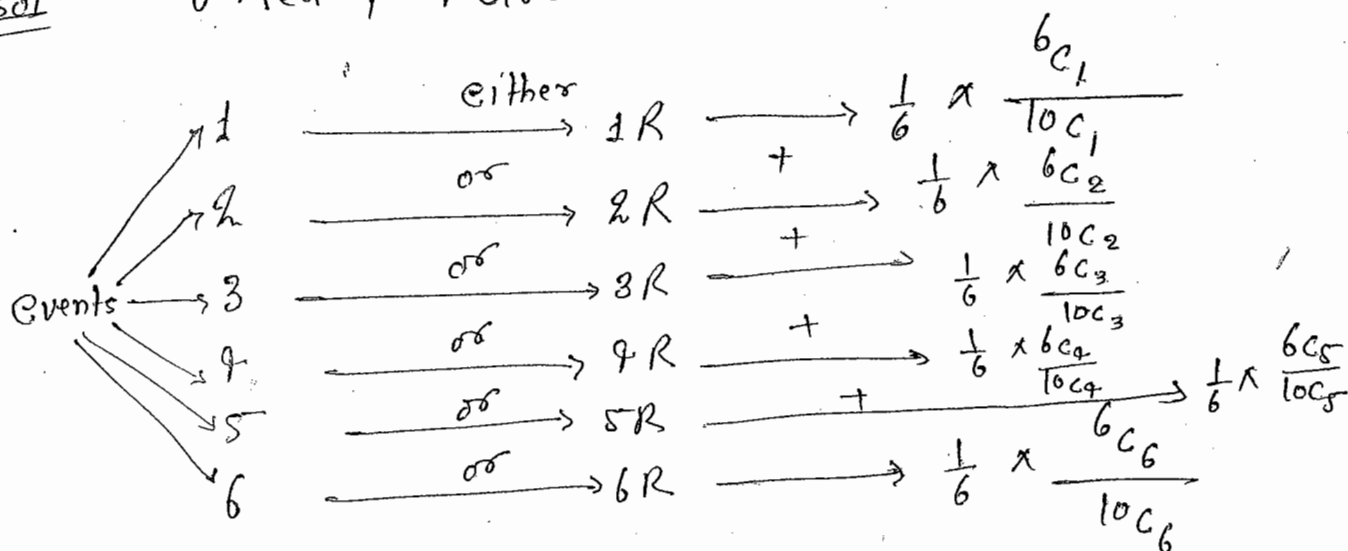 Sol
events
1 either 1R 1/6 × 6C1/10C1
2 or 2R + 1/6 × 6C2/10C2
3 or 3R + 1/6 × 6C3/10C3
4 or 4R + 1/6 × 6C4/10C4
5 or 5R + 1/6 × 6C5/10C5
6 or 6R 1/6 × 6C6/10C6